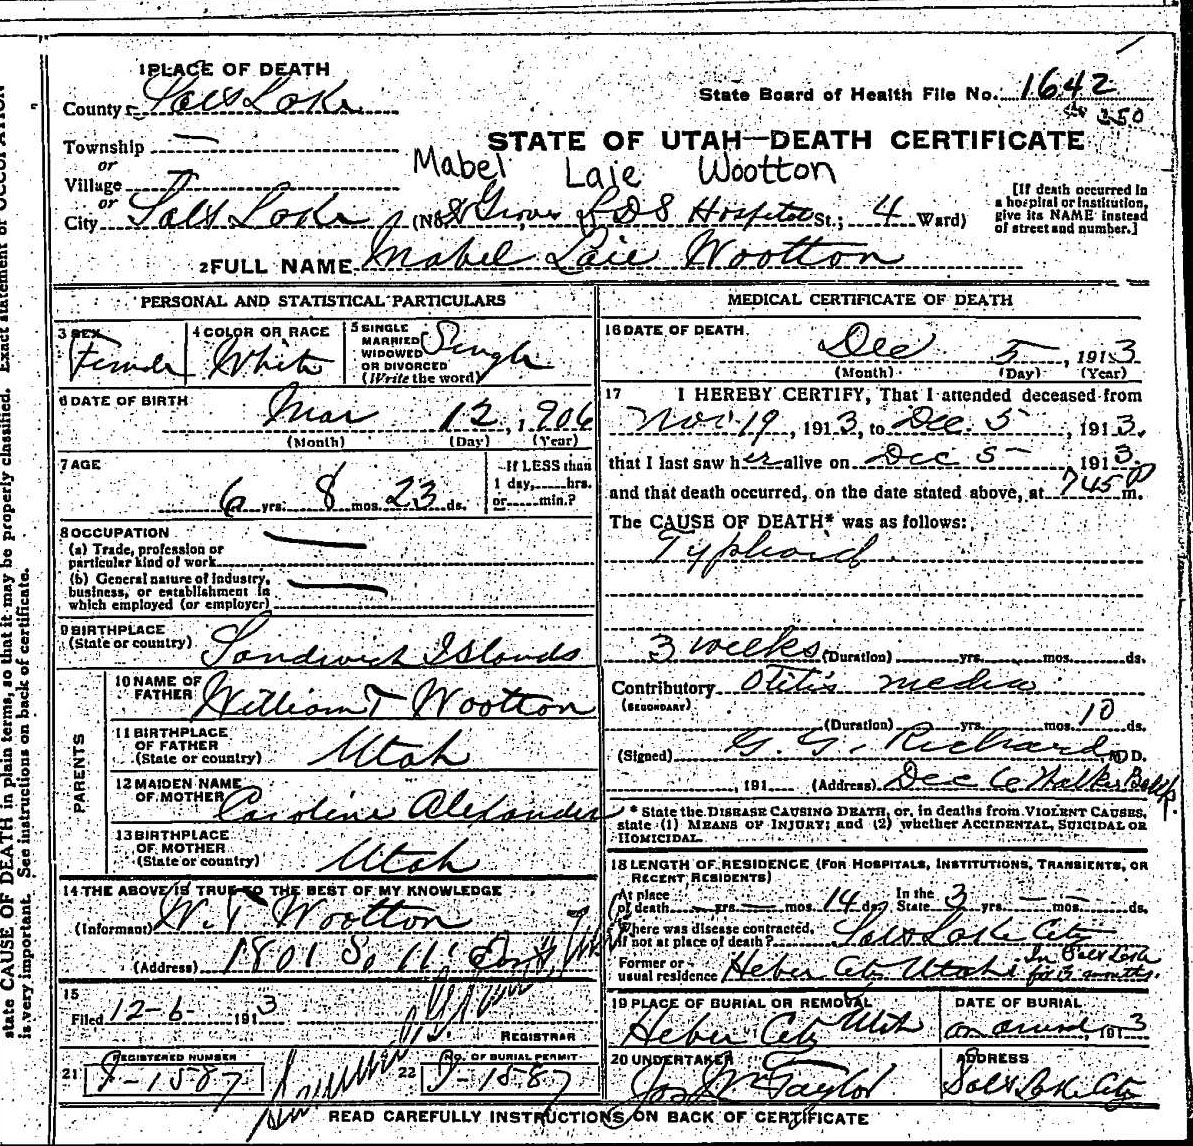 1 PLACE OF DEATH
County Salt Lake
State Board of Health File No. 1642
350
STATE OF UTAH—DEATH CERTIFICATE
Township —
or
Village
or
Mabel Laie Wootton
City Salt Lake (No. 8 Groves L D S Hospital St.; 4 Ward)
[If death occurred in
a hospital or institution,
give its NAME instead
of street and number.]
2 FULL NAME Mabel Laie Wootton
PERSONAL AND STATISTICAL PARTICULARS
3 SEX
Female
4 COLOR OR RACE
White
5 SINGLE
MARRIED
WIDOWED
OR DIVORCED
(Write the word)
Single
6 DATE OF BIRTH
Mar 12, 1906
(Month) (Day) (Year)
7 AGE
6 yrs. 8 mos. 23 ds.
If LESS than
1 day, hrs.
or min.?
8 OCCUPATION
(a) Trade, profession or
particular kind of work
(b) General nature of Industry,
business, or establishment in
which employed (or employer)
9 BIRTHPLACE
(State or country) Sandwich Islands
PARENTS
10 NAME OF
FATHER William T Wootton
11 BIRTHPLACE
OF FATHER
(State or country) Utah
12 MAIDEN NAME
OF MOTHER Caroline Alexander
13 BIRTHPLACE
OF MOTHER
(State or country) Utah
14 THE ABOVE IS TRUE TO THE BEST OF MY KNOWLEDGE
(Informant) W. T Wootton
(Address) 1801 So 11" East
15
Filed 12-6- 1913
REGISTRAR
REGISTERED NUMBER
21 D-1587
No. OF BURIAL PERMIT
22 D-1587
MEDICAL CERTIFICATE OF DEATH
16 DATE OF DEATH
Dec 5, 1913
(Month) (Day) (Year)
17 I HEREBY CERTIFY, That I attended deceased from
Nov. 19, 1913, to Dec. 5, 1913,
that I last saw her alive on Dec 5 1913.
and that death occurred, on the date stated above, at 745 P m.
The CAUSE OF DEATH* was as follows:
Typhoid
3 weeks (Duration) yrs. mos. ds.
Contributory Otitis media
(SECONDARY)
(Duration) yrs. mos. 10 ds.
(Signed) G. G. Richards, M D.
, 191 (Address) Dec 6 Walker Bank
* State the DISEASE CAUSING DEATH, or, in deaths from VIOLENT CAUSES,
state (1) MEANS OF INJURY; and (2) whether ACCIDENTAL, SUICIDAL OR
HOMICIDAL.
18 LENGTH OF RESIDENCE (FOR HOSPITALS, INSTITUTIONS, TRANSIENTS, OR
RECENT RESIDENTS)
At place
of death — yrs. — mos. 14 ds. In the
State 3 yrs. — mos. ds.
Where was disease contracted,
if not at place of death? Salt Lake City
Former or
usual residence Heber City Utah. In Salt Lake
for 3 months.
19 PLACE OF BURIAL OR REMOVAL
Heber City Utah
DATE OF BURIAL
1913
20 UNDERTAKER
Jos Wm Taylor
ADDRESS
Salt Lake City
READ CAREFULLY INSTRUCTIONS ON BACK OF CERTIFICATE
state CAUSE OF DEATH in plain terms, so that it may be properly classified. Exact statement of OCCUPATION
is very important. See instructions on back of certificate.